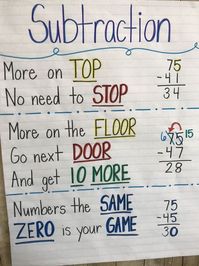 Subtraction
More on TOP
No need to STOP
75
-41
34
More on the FLOOR
Go next DOOR
And get 10 MORE
6 75 15
-47
28
Numbers the SAME
ZERO is your GAME
75
-45
30